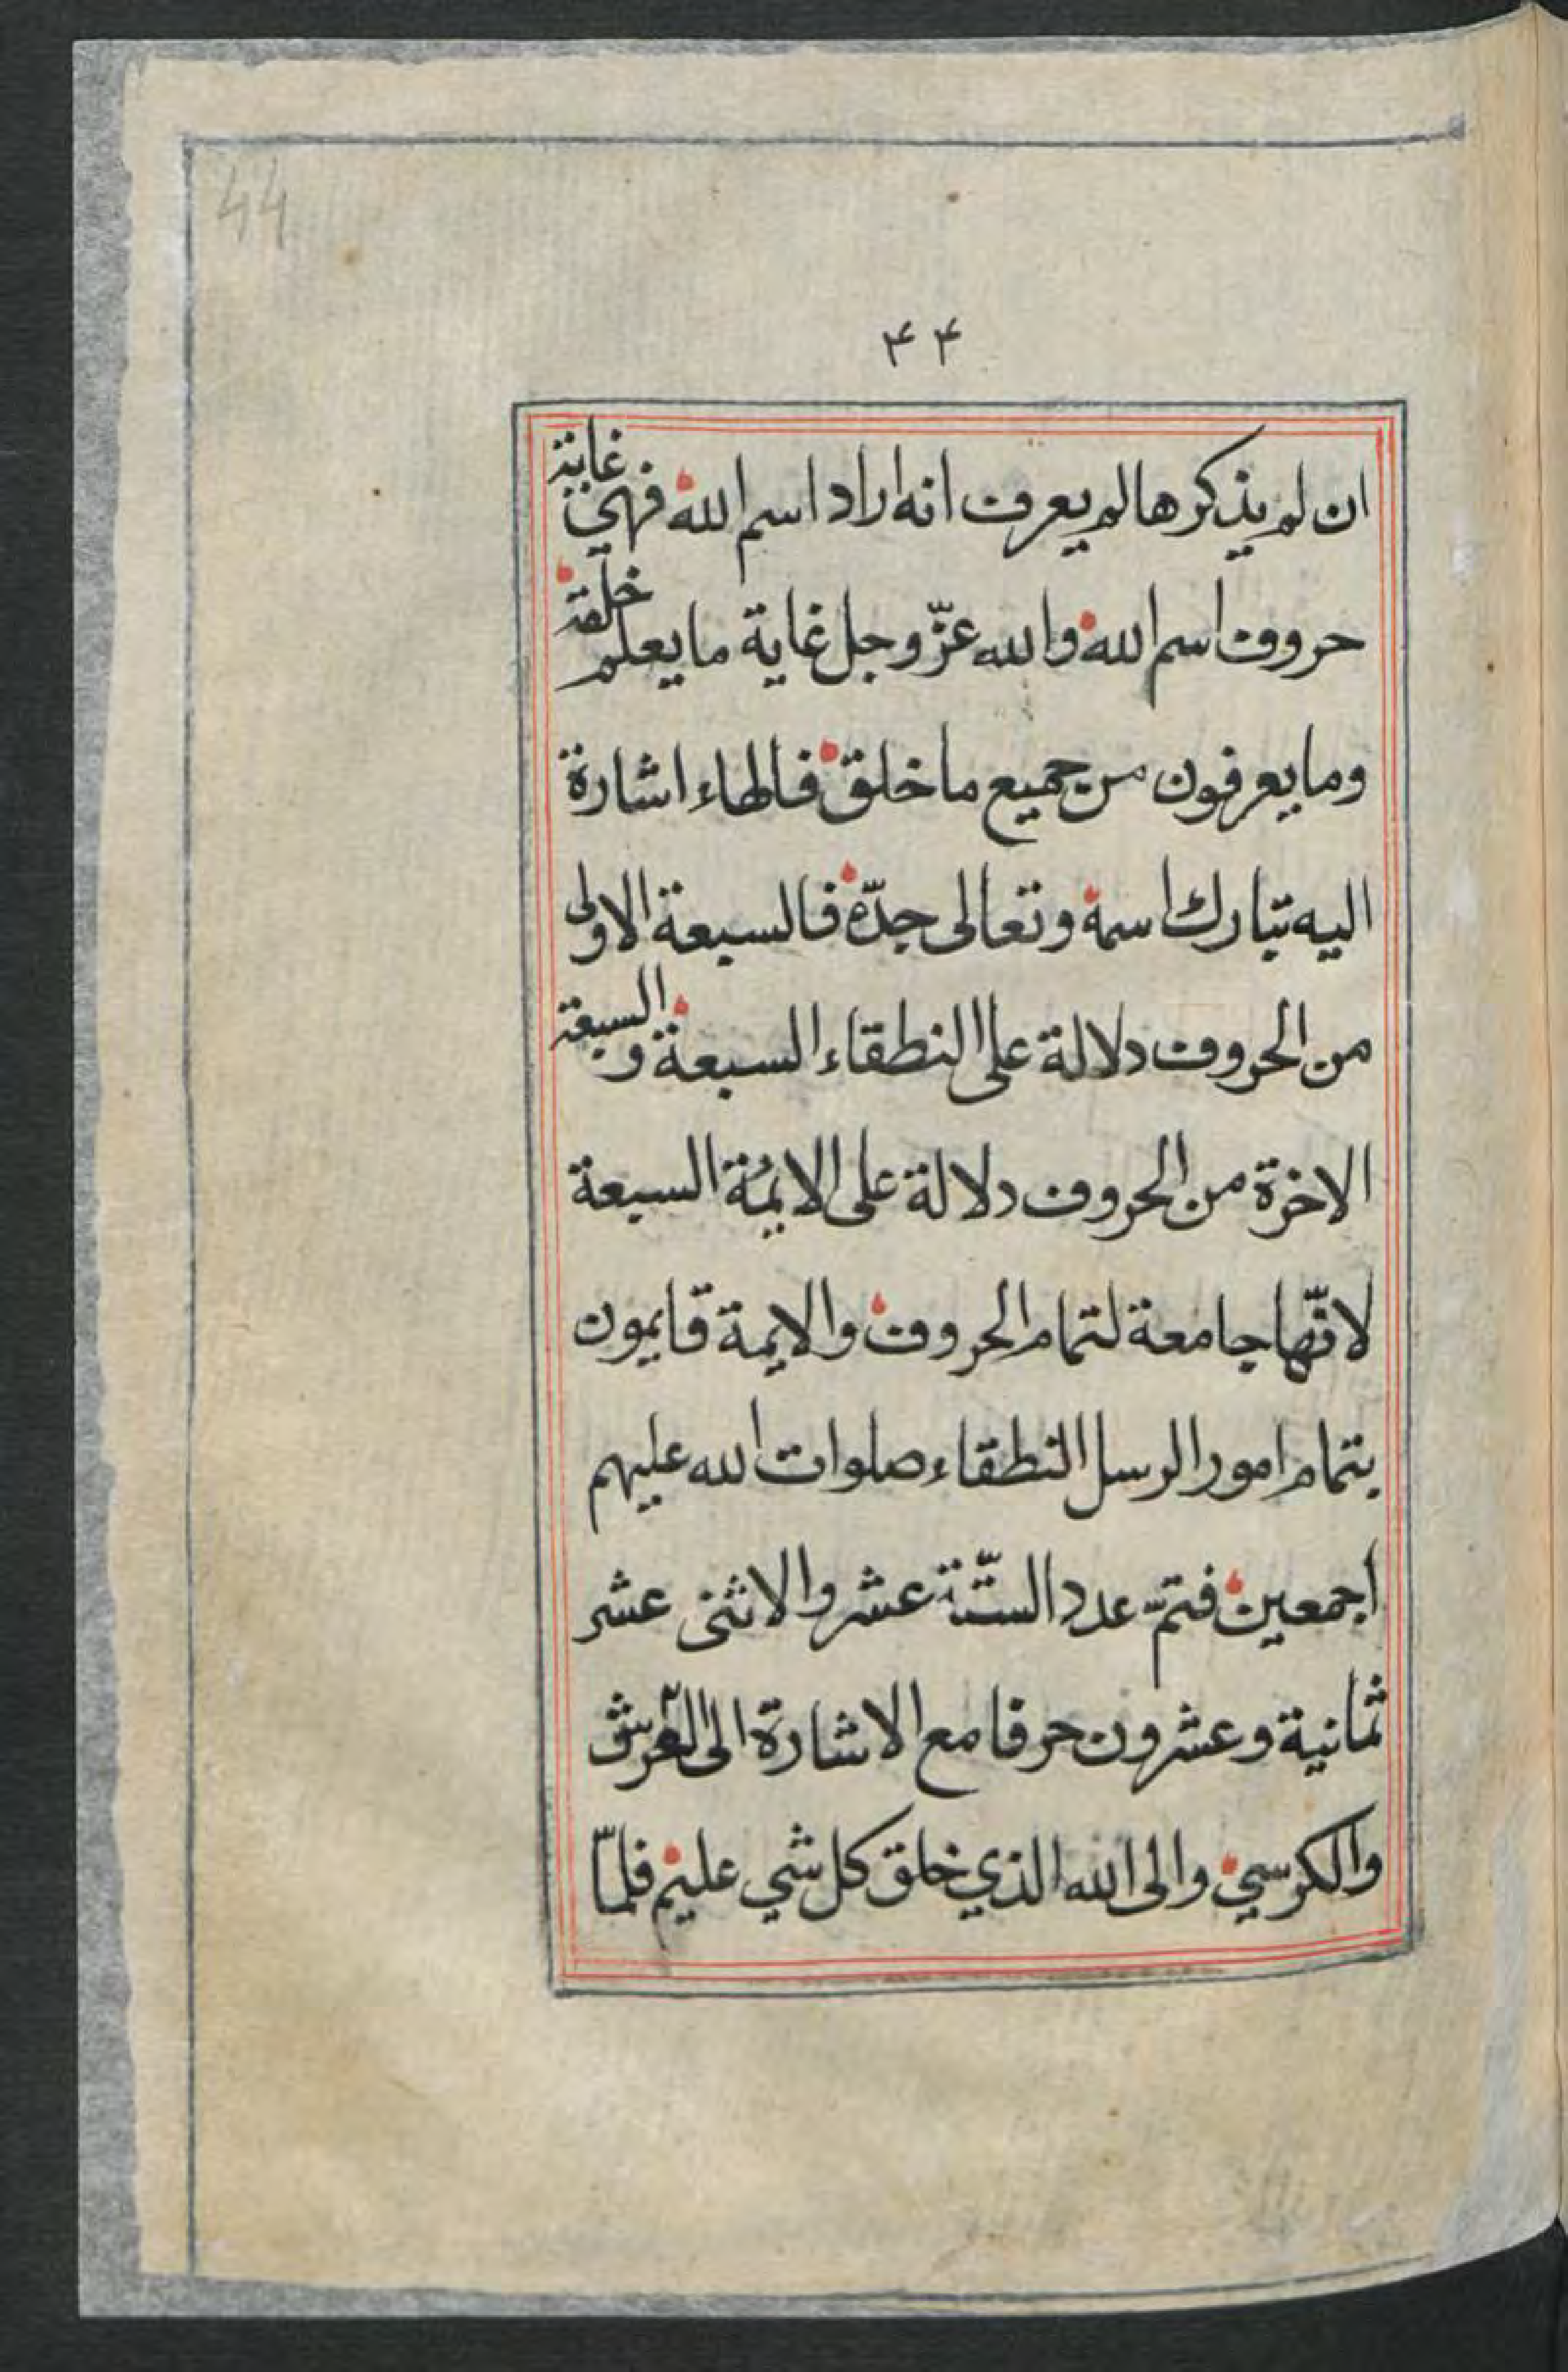 44
۴۴
ان لم يذكرها لم يعرف انه اراد اسم الله فهي غاية
حروف اسم الله والله عزّ وجل غاية ما يعلم خلقه
وما يعرفون من جميع ما خلق فالهاء اشارة
اليه تبارك اسمه وتعالى جدّه فالسبعة الاولى
من الحروف دلالة على النطقاء السبعة والسبعة
الاخرة من الحروف دلالة على الايمّة السبعة
لانّها جامعة لتمام الحروف والايمة قايمون
بتمام امور الرسل النطقاء صلوات الله عليهم
اجمعين فتمّ عدد الستّة عشر والاثنى عشر
ثمانية وعشرون حرفا مع الاشارة الى العرش
والكرسي والى الله الذي خلق كل شي عليم فلمّا